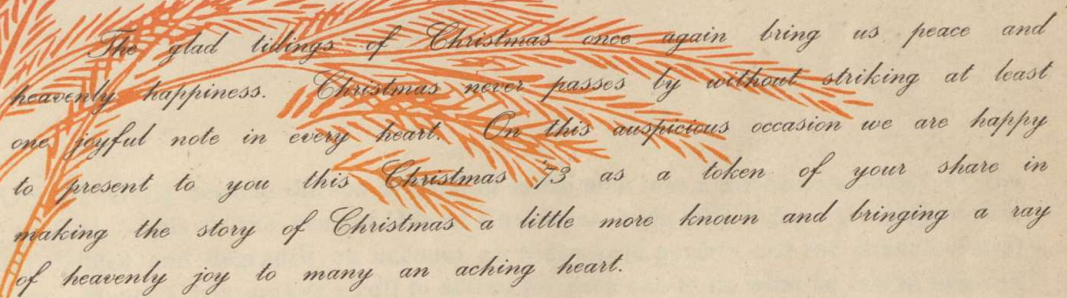 The glad tidings of Christmas once again bring us peace and
heavenly happiness. Christmas never passes by without striking at least
one joyful note in every heart. On this auspicious occasion we are happy
to present to you this Christmas '73 as a token of your share in
making the story of Christmas a little more known and bringing a ray
of heavenly joy to many an aching heart.